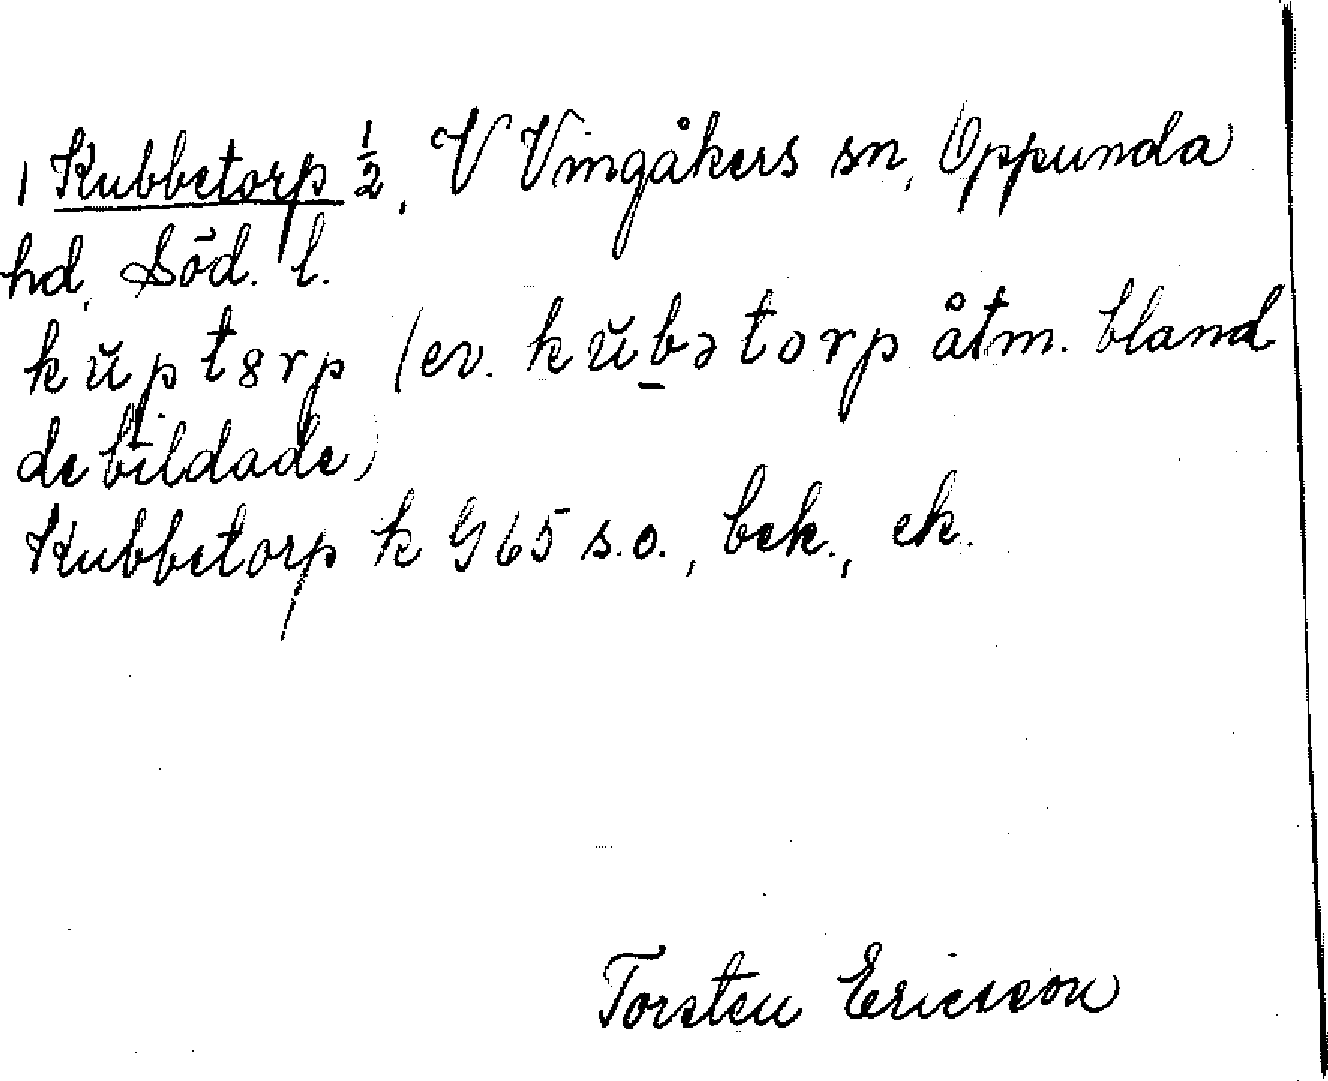 1 Kubbetorp ½, V Vingåkers sn, Oppunda
hd, Söd. l.
kŭpt8rp (ev. kŭbətorp åtm. bland
de bildade)
Kubbetorp k G65 s.o., bek., ek.
Torsten Ericsson